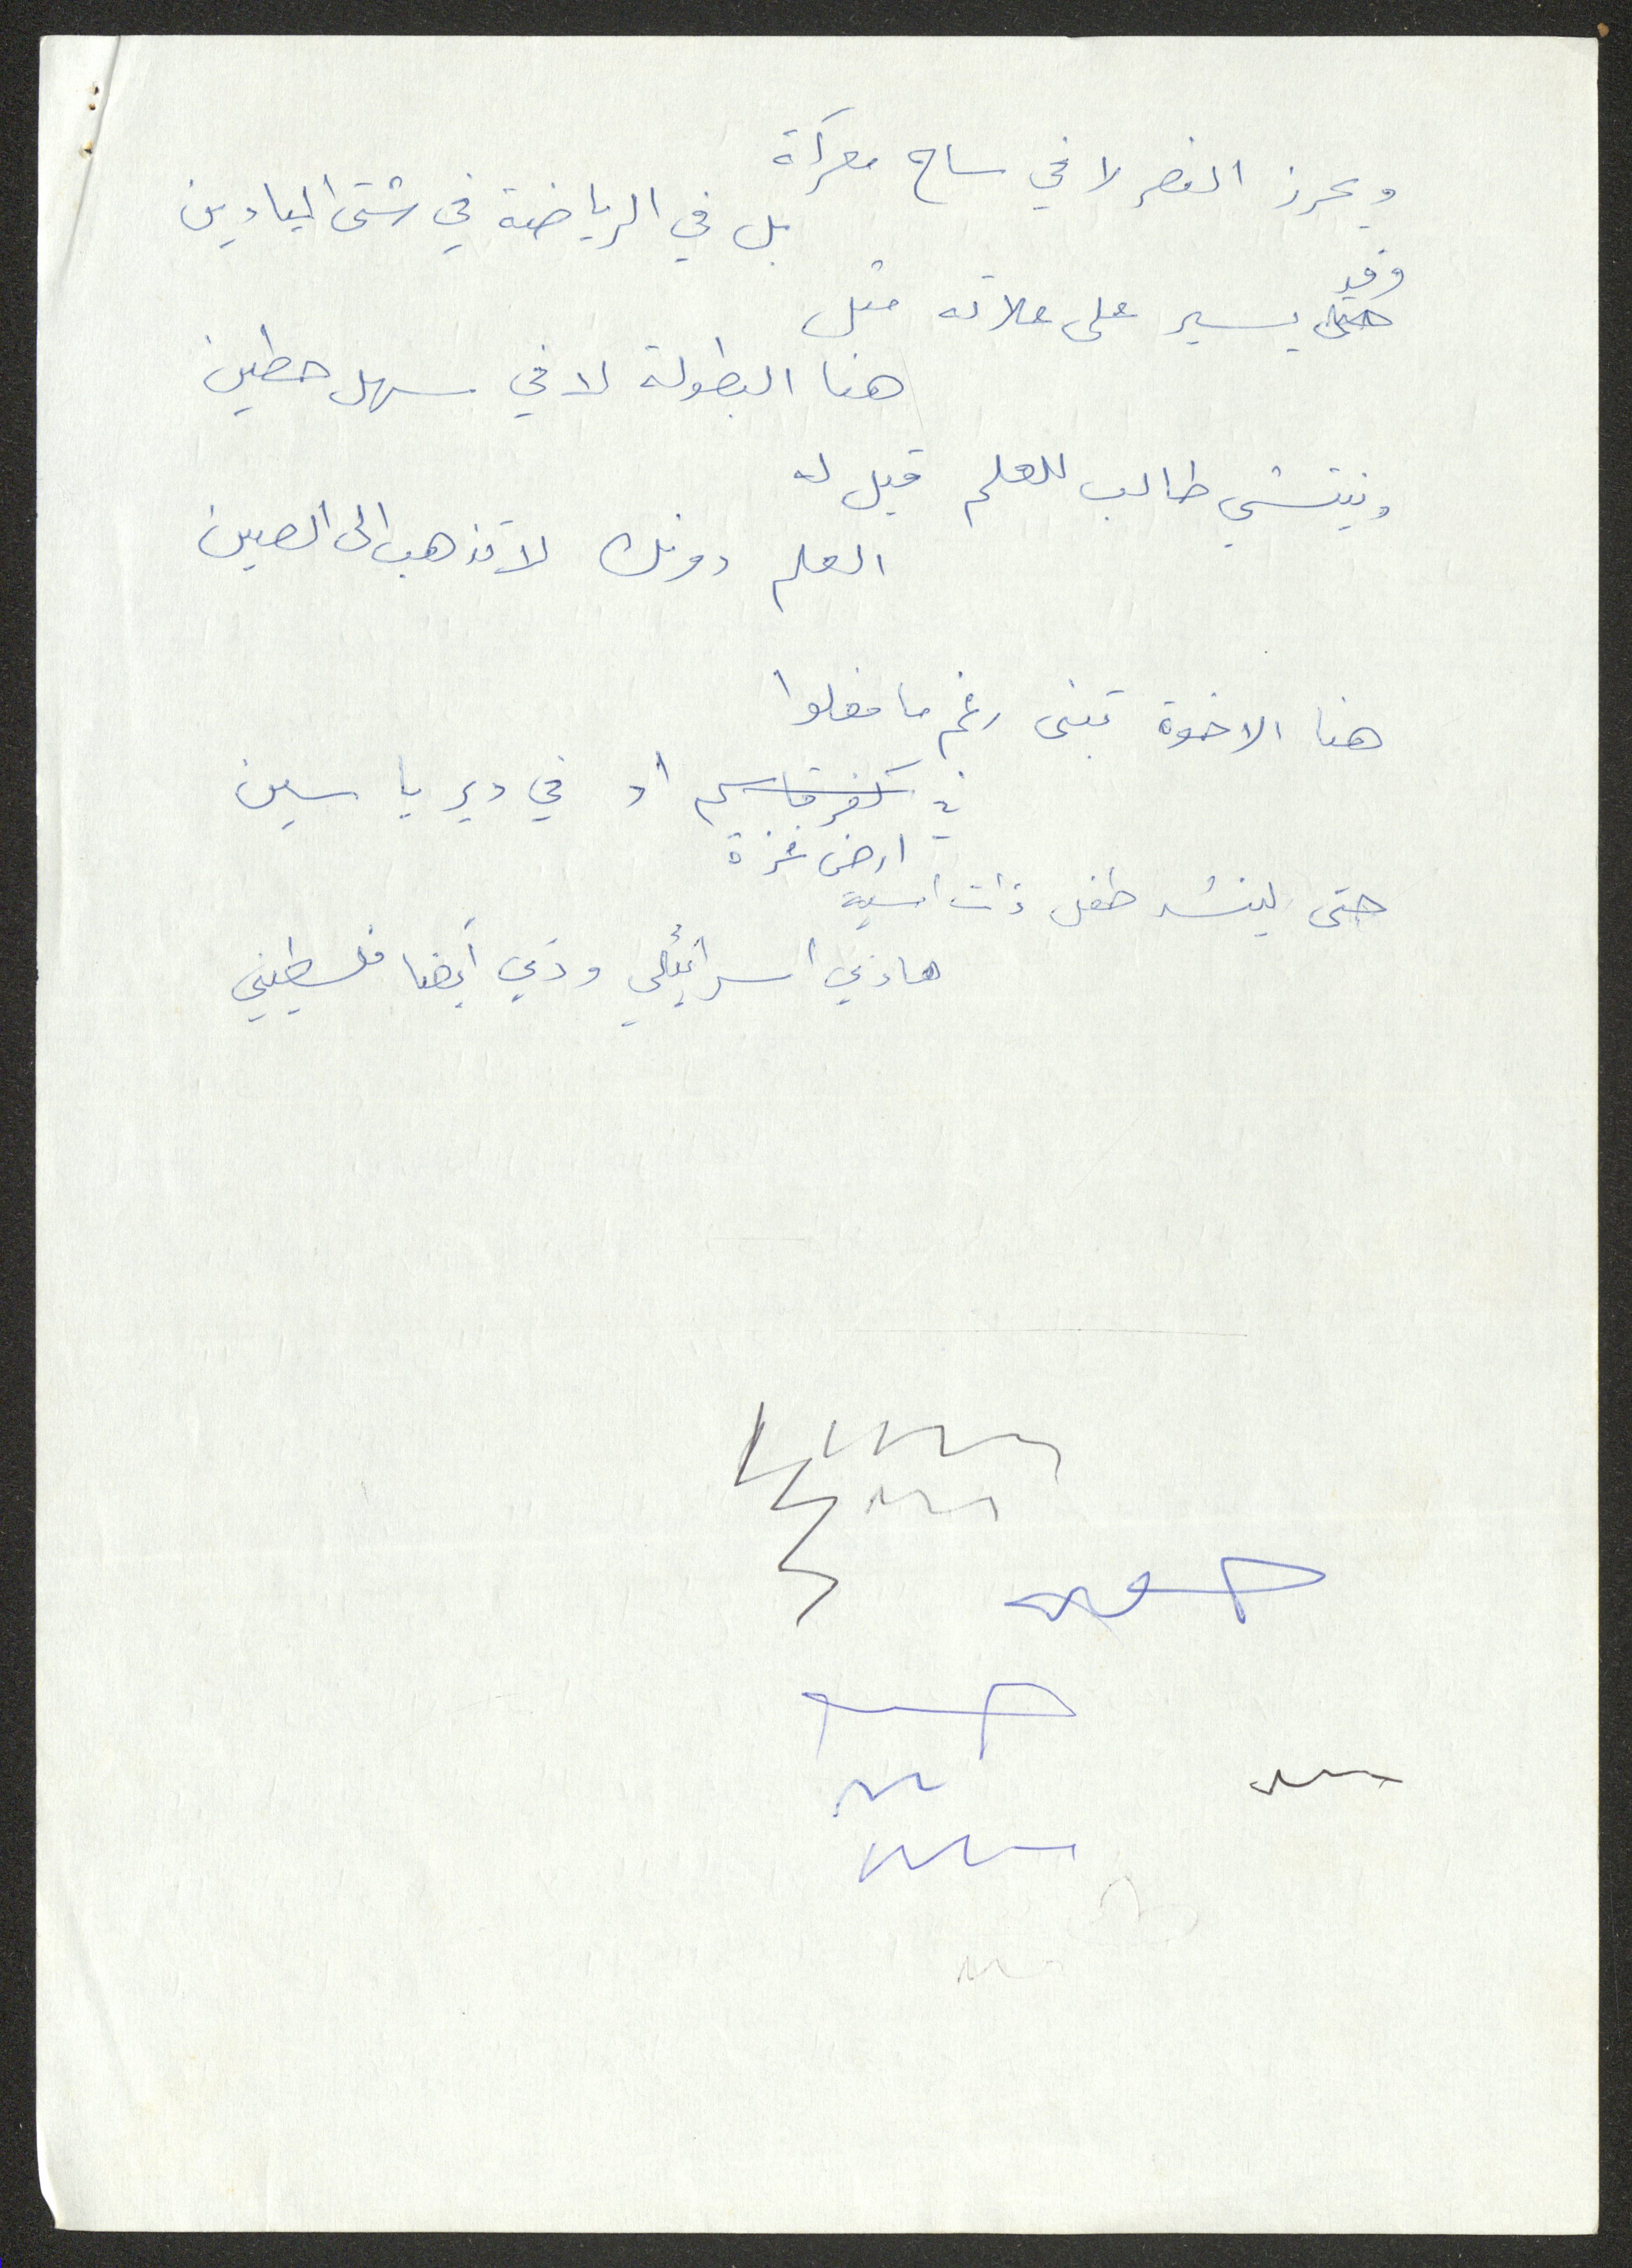 ويحرز النصر لا في ساح معركة
بل في الرياضة في شتى الميادين
وقد
حتى يسير على علاته مثل
هنا البطولة لا في سهل حطين
وينتشي طالب للعلم قيل له
العلم دونك لا تذهب الى الصين
هنا الاخوة تبنى رغم ما فعلوا
في كفر قاسم او في دير ياسين
ارض غزة
حتى لينشد طفل ذات امسية
هاذي اسرائيلي وذي أيضا فلسطيني